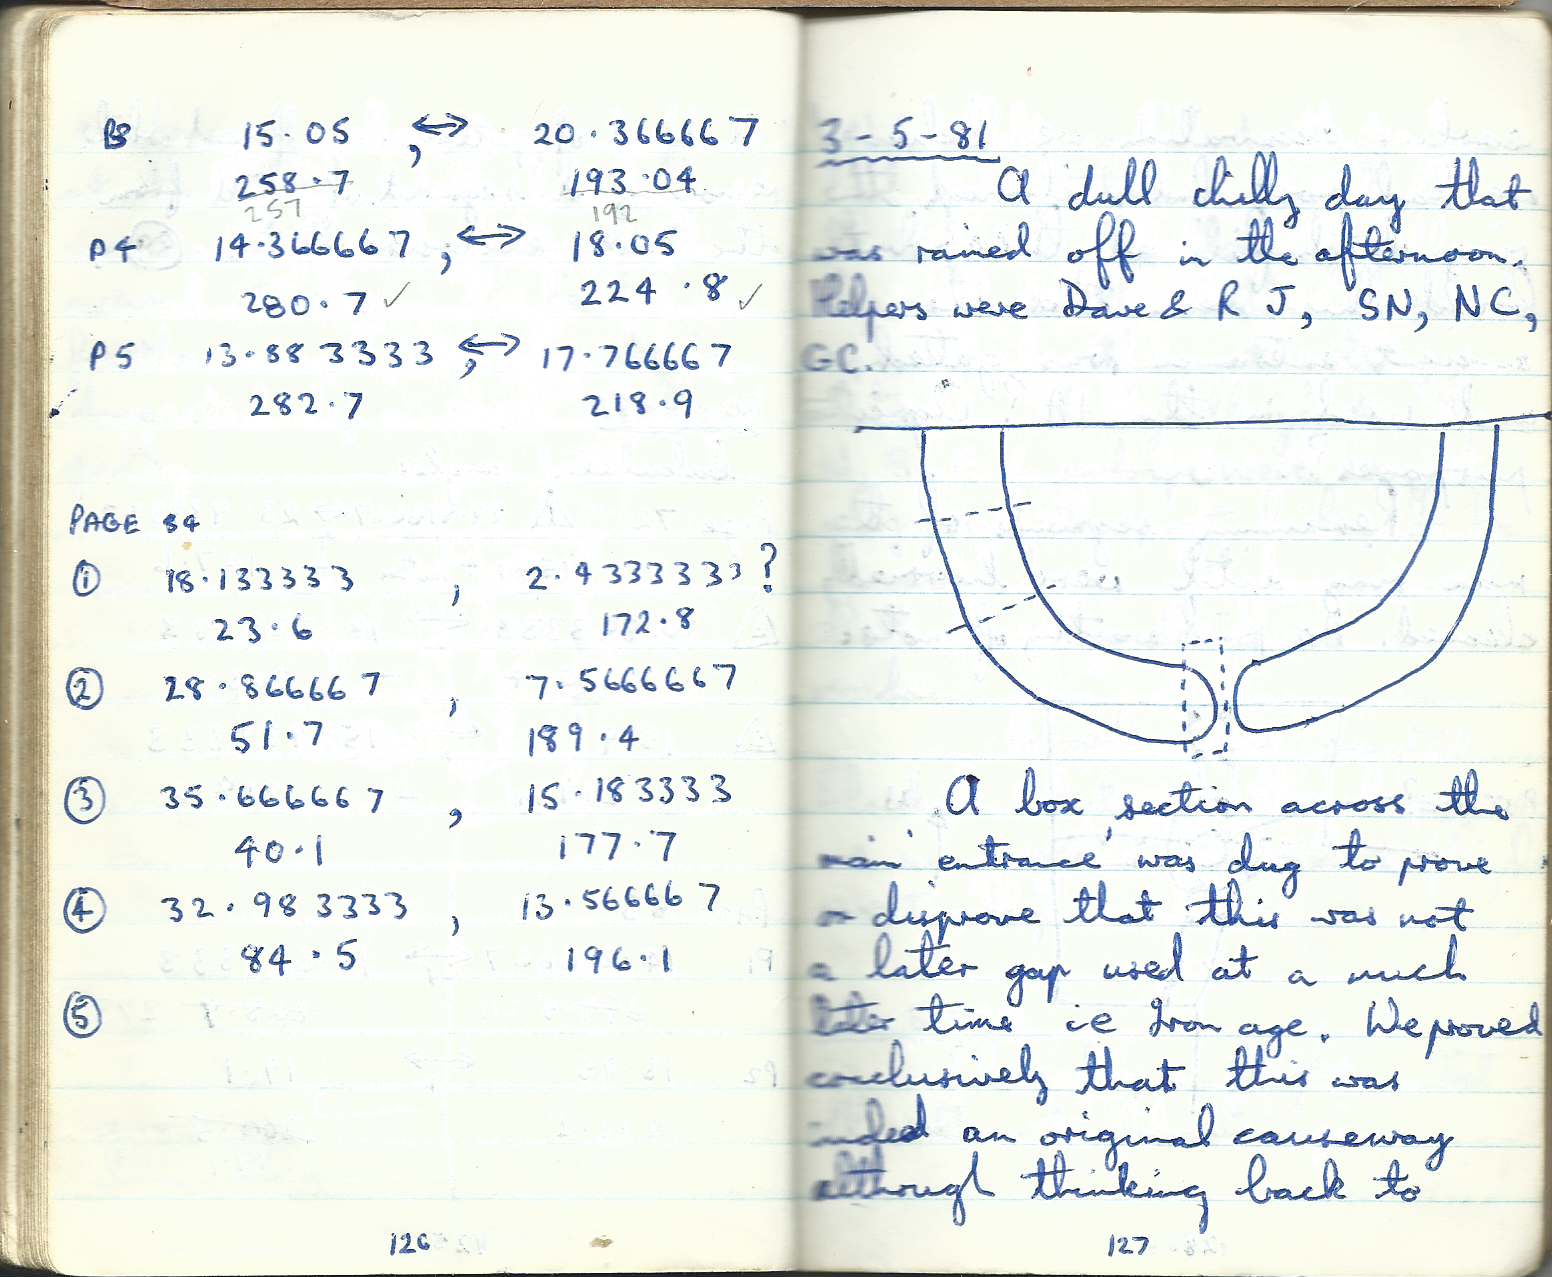 B8 15.05 , ↔ 20.366667
258.7 193.04
257 192
P4 14.366667 , ↔ 18.05
280.7 ✓ 224.8 ✓
P5 13.883333 , ↔ 17.766667
282.7 218.9
PAGE 84
① 18.133333 , 2.4333333 ?
23.6 172.8
② 28.866667 , 7.5666667
51.7 189.4
③ 35.666667 , 15.183333
40.1 177.7
④ 32.983333 , 13.566667
84.5 196.1
⑤
126
3-5-81
A dull chilly day that
was rained off in the afternoon.
Helpers were Dave & R J, SN, NC,
GC.
A box section across the
main 'entrance' was dug to prove
or disprove that this was not
a later gap used at a much
later time ie Iron age. We proved
conclusively that this was
indeed an original causeway
although thinking back to
127